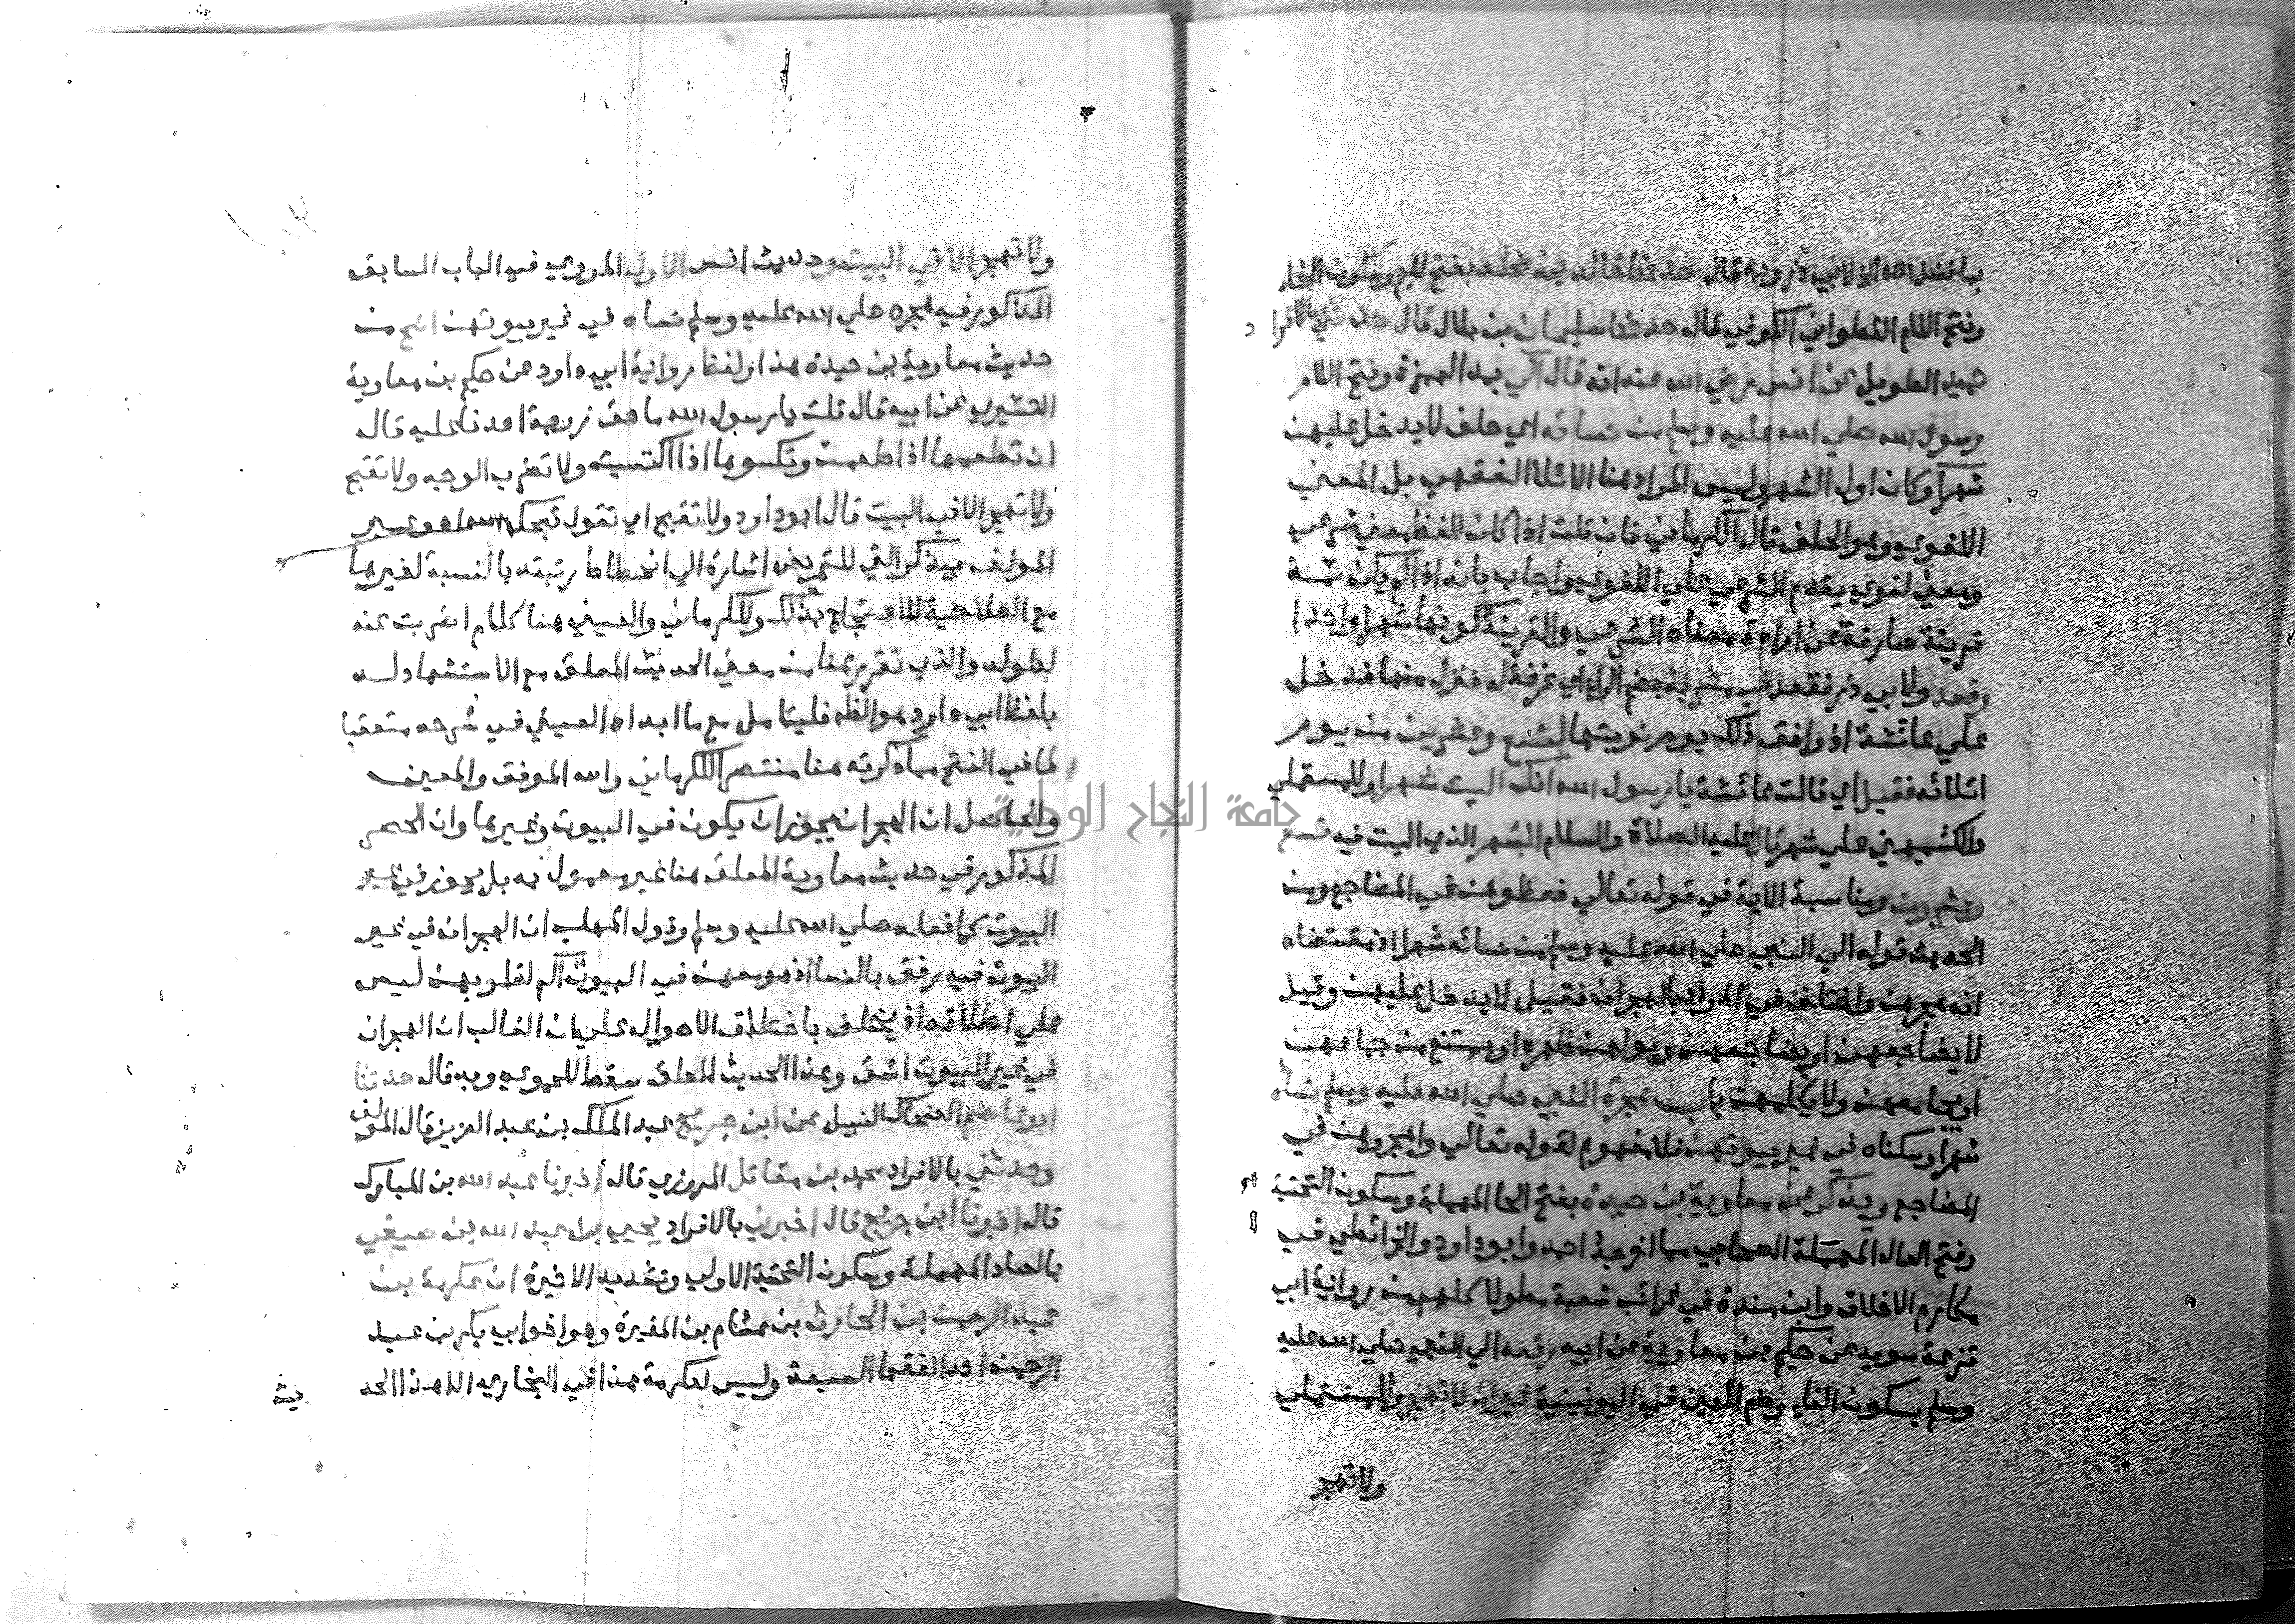 بما فضل الله الخ لابي ذر وبه قال حدثنا خالد بن مخلد بفتح الميم وسكون الخاء
وفتح اللام القطواني الكوفي قال حدثنا سليمان بن بلال قال حدثني بالافراد
حميد الطويل عن انس رضي الله عنه انه قال آلي بمد الهمزة وفتح اللام
رسول الله صلي الله عليه وسلم من نسائه اي حلف لا يدخل عليهن
شهرا وكان اول الشهر وليس المراد هنا الايلاء الفقهي بل المعني
اللغوي وهو الحلف قال الكرماني فان قلت اذا كان للفظ معني شرعي
ومعني لغوي يقدم الشرعي علي اللغوي واجاب بانه اذا لم يكن ثمة
قرينة صارفة عن ارادة معناه الشرعي والقرينة كونها شهرا واحدا
وقعد ولابي ذر فقعد في مشربة بضم الراء اي غرفة له فنزل منها فدخل
علي عائشة اذ وافق ذلك يوم نوبتها لتسع وعشرين من يوم
ايلائه فقيل اي قالت عائشة يا رسول الله انك اليت شهرا وللمستملي
والكشميهني علي شهر قال عليه الصلاة والسلام الشهر الذي اليت فيه تسع
وعشرون ومناسبة الاية في قوله تعالي فعظوهن في المضاجع ومن
الحديث قوله الي النبي صلي الله عليه وسلم من نسائه شهرا اذ مقتضاه
انه هجرهن واختلف في المراد بالهجران فقيل لا يدخل عليهن وقيل
لا يضاجعهن او يضاجعهن ويولهن ظهره او يمتنع من جماعهن
او يجامعهن ولا يكلمهن باب هجرة النبي صلي الله عليه وسلم نساه
شهرا وسكناه في غير بيوتهن فلا مفهوم لقوله تعالي واهجروهن في
المضاجع ويذكر عن معاوية بن حيدة بفتح الحا المهملة وسكون التحتية
وفتح الدال المهملة الصحابي مما اخرجه احمد وابو داود والخرائطي في
مكارم الاخلاق وابن مندة في غرائب شعبة مطولا كلهم من رواية ابي
قزعة سويد عن حكيم بن معاوية عن ابيه رفعه الي النبي صلي الله عليه
وسلم بسكون الفاء وضم العين في اليونينية غير ان لا تهجر وللمستملي
ولا تهجر
ولا تهجر الا في البيت وحديث انس الاول المروي في الباب السابق
المذكور فيه هجره صلي الله عليه وسلم نساه في غير بيوتهن اصح من
حديث معاوية بن حيدة هذا ولفظ رواية ابي داود عن حكيم بن معاوية
القشيري عن ابيه قال قلت يا رسول الله ما حق زوجة احدنا عليه قال
ان تطعمها اذا طعمت وتكسوها اذا اكتسيت ولا تضرب الوجه ولا تقبح
ولا تهجر الا في البيت قال ابو داود ولا تقبح اي تقول قبحك الله وعبر
المولف بيذكر التي للتمريض اشارة الي انحطاط رتبته بالنسبة لغيرها
مع الصلاحية للاحتجاج بذلك وللكرماني والعيني هنا كلام اضربت عنه
لطوله والذي تقرر هنا من معني الحديث المعلق مع الاستشهاد له
بلفظ ابي داود هو الظاهر فليتامل مع ما ابداه العيني في شرحه متعقبا
لما في الفتح مما ذكرته هنا منتصرا للكرماني والله الموفق والمعين
والحاصل ان الهجران يجوز ان يكون في البيوت وغيرها وان الحصر
المذكور في حديث معاوية المعلق هنا غير معمول به بل يجوز في غير
البيوت كما فعله صلي الله عليه وسلم وقول المهلب ان الهجران في غير
البيوت فيه رفق بالنسا اذ هو معهن في البيوت آلم لقلوبهن ليس
علي اطلاقه اذ يختلف باختلاف الاحوال علي ان الغالب ان الهجران
في غير البيوت اشق وهذا الحديث المعلق سقط للحموي وبه قال حدثنا
ابو عاصم الضحاك النبيل عن ابن جريج عبد الملك بن عبد العزيز قال المولف
وحدثني بالافراد محمد بن مقاتل المروزي قال اخبرنا عبد الله بن المبارك
قال اخبرنا ابن جريج قال اخبرني بالافراد يحيي بن عبد الله بن صيفي
بالصاد المهملة وسكون التحتية الاولي وتشديد الاخيرة ان عكرمة بن
عبد الرحمن بن الحارث بن هشام بن المغيرة وهو اخو ابي بكر بن عبد
الرحمن احد الفقها السبعة وليس لعكرمة هذا في البخاري الا هذا الحد
يث
جامعة النجاح الوطنية